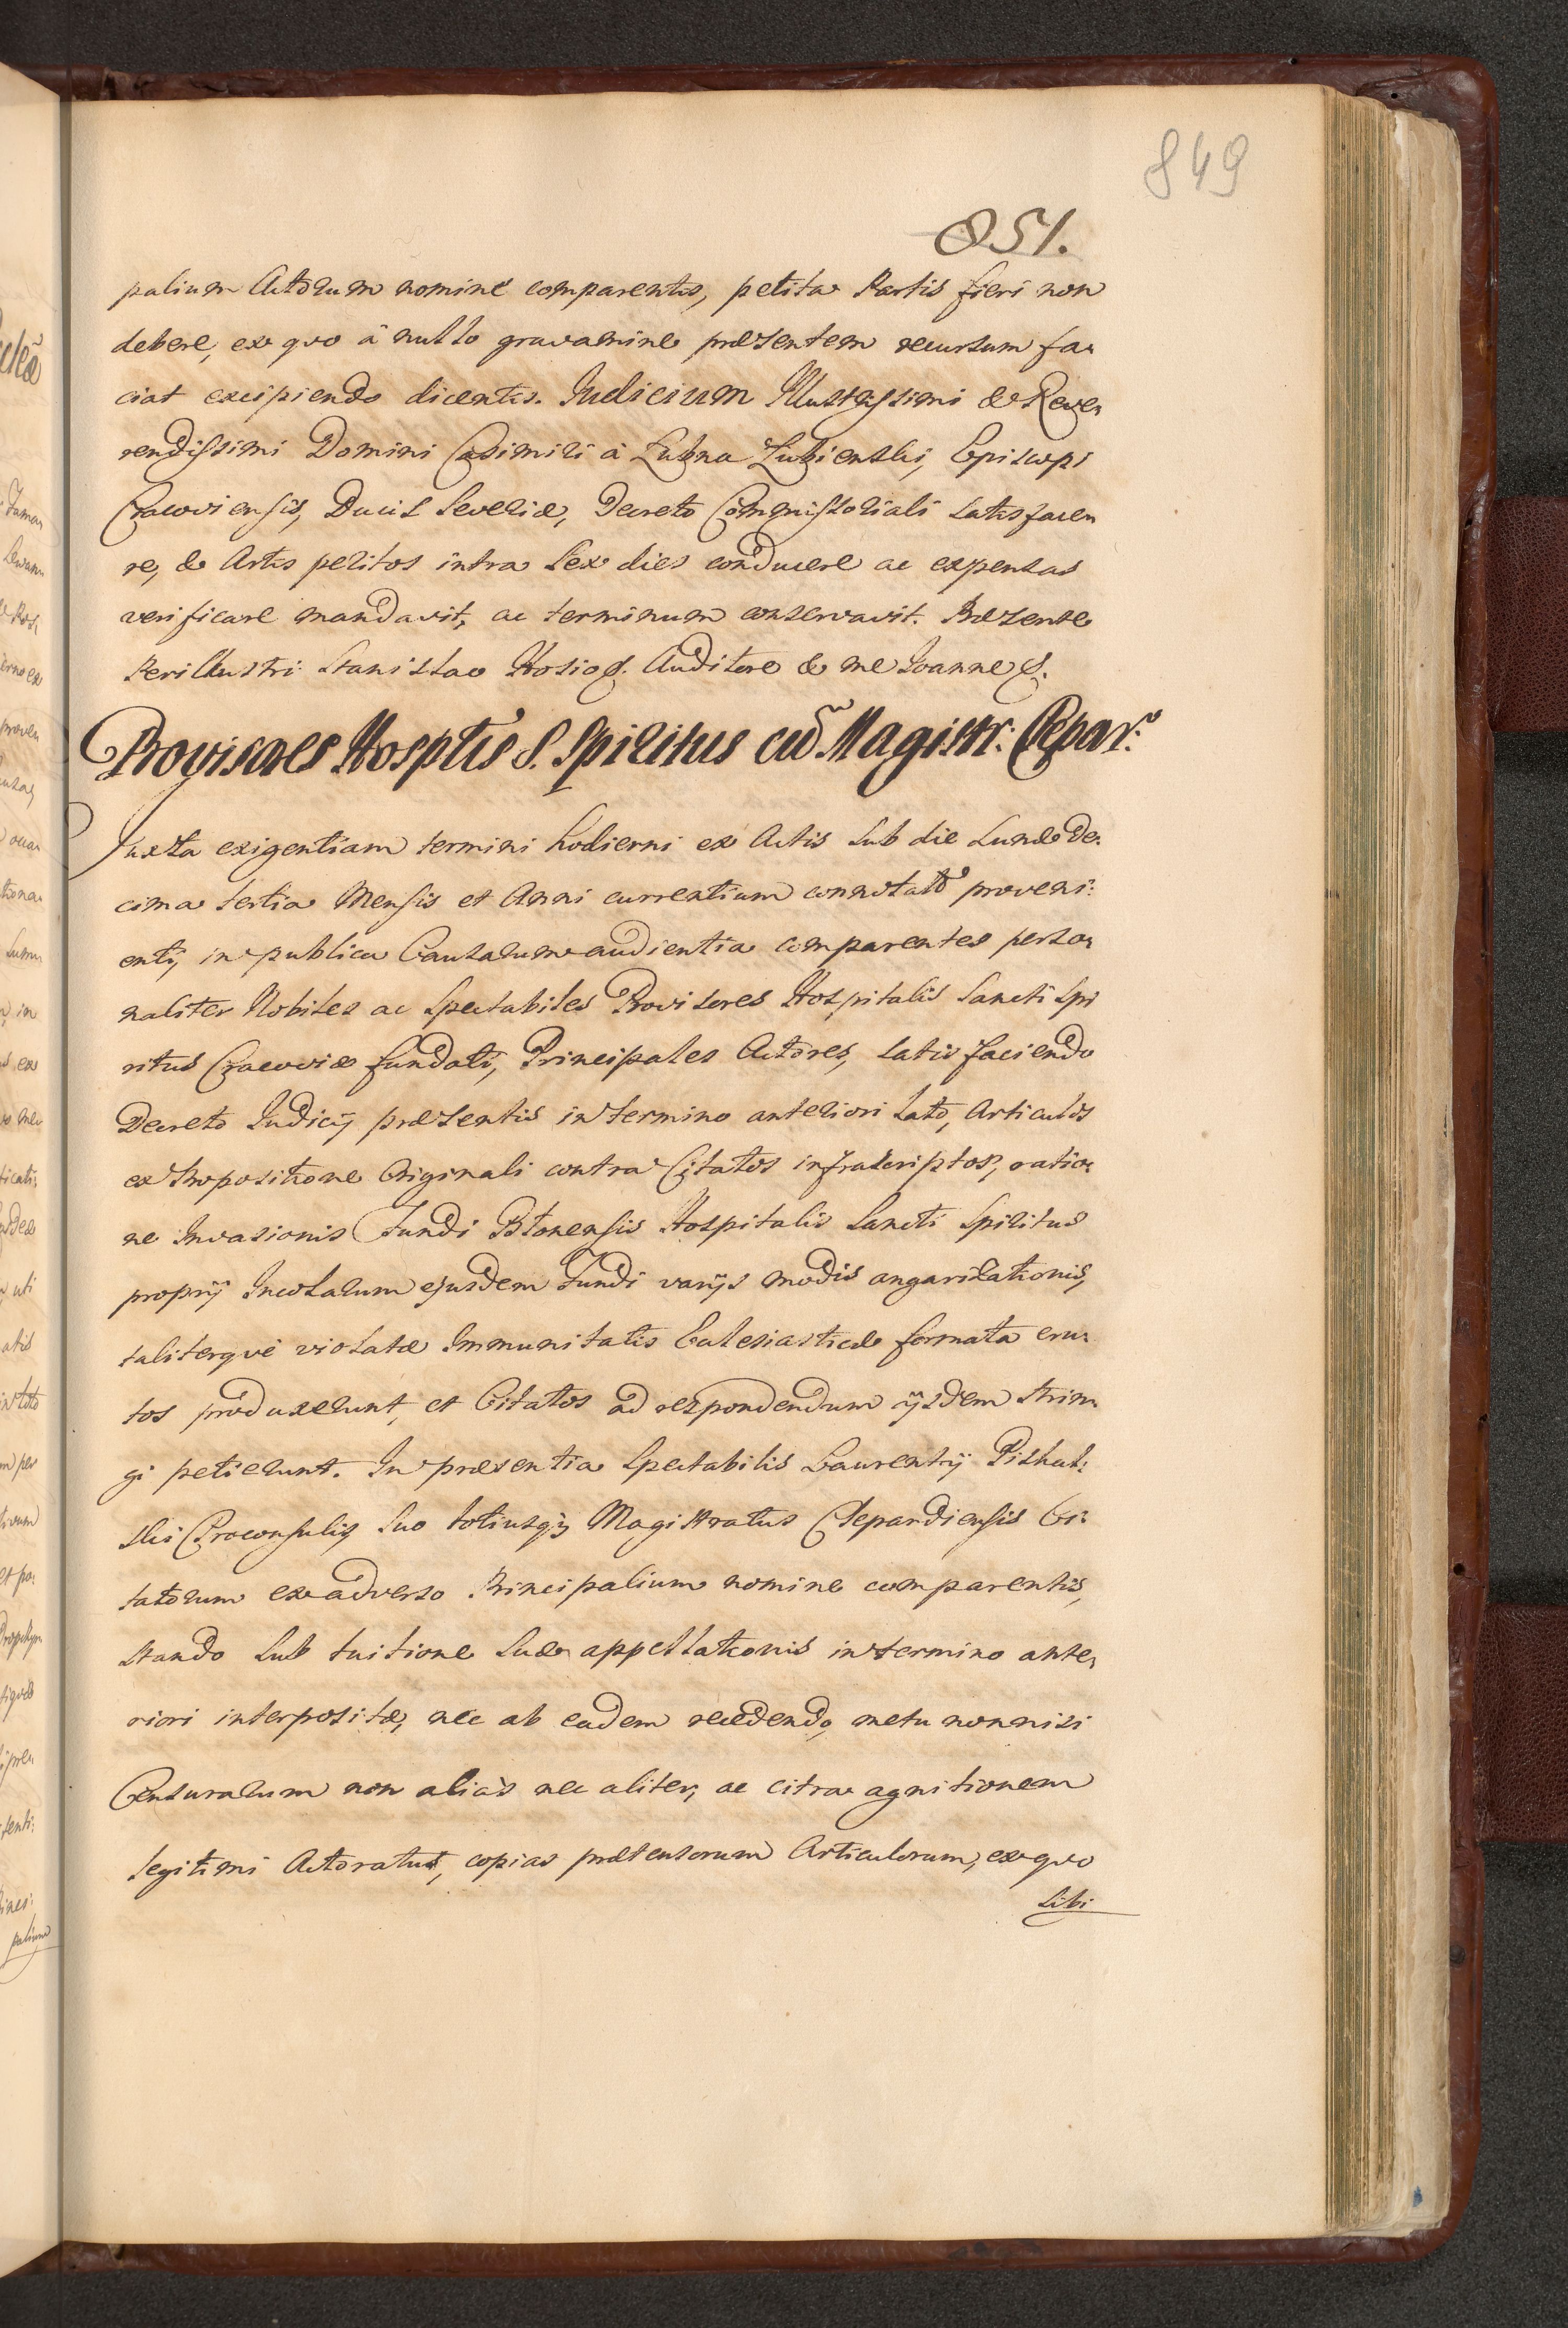 849
851.
palium Actorum nomine comparentis, petita Partis fieri non
debere, ex quo á nullo gravamine præsentem recursum fa-
ciat excipiendo dicentis. Judicium Illustrissimi & Reve-
rendissimi Domini Casimiri á Lubna Lubienski, Episcopi
Cracoviensis, Ducis Severiæ, Decreto Commissoriali satisface-
re, & Artis peritos intra sex dies conducere ac expensas
verificare mandavit, ac terminum conservavit. Præsente
Perillustri Stanislao Hosio S. Auditore & me Joanne S.
Provisores Hosptis S. Spiritus cū Magistr: Clepar:
Juxta exigentiam termini hodierni ex Actis sub die Lunæ de-
cima tertia Mensis et Anni currentium connotato proveni-
entis, in publica Causarum audientia comparentes perso-
naliter Nobiles ac Spectabiles Provisores Hospitalis Sancti Spi
ritus Cracoviæ fundati, Principales Actores, satis faciendo
Decreto Judicij præsentis in termino anteriori lato, Articulos
ex Propositione Originali contra Citatos infrascriptos, ratio-
ne Invasionis Fundi Blonensis Hospitalis Sancti Spiritus
proprij Incolarum ejusdem Fundi varijs modis angarizationis,
taliterque violatæ Immunitatis Ecclesiasticæ formata eru-
tos produxerunt, et Citatos ad respondendum ijsdem strin-
gi petierunt. In præsentia Spectabilis Laurentij Piskul-
ski Proconsulis suo totiusq Magistratus Clepardiensis Ci-
tatorum ex adverso Principalium nomine comparentis,
stando sub tuitione suæ appellationis in termino ante-
riori interpositæ, nec ab eadem recedendo, metu nonnisi
Censurarum non aliàs nec aliter, ac citra agnitionem
legitimi Actoratus, copias prætensorum Articulorum, ex quo
sibi